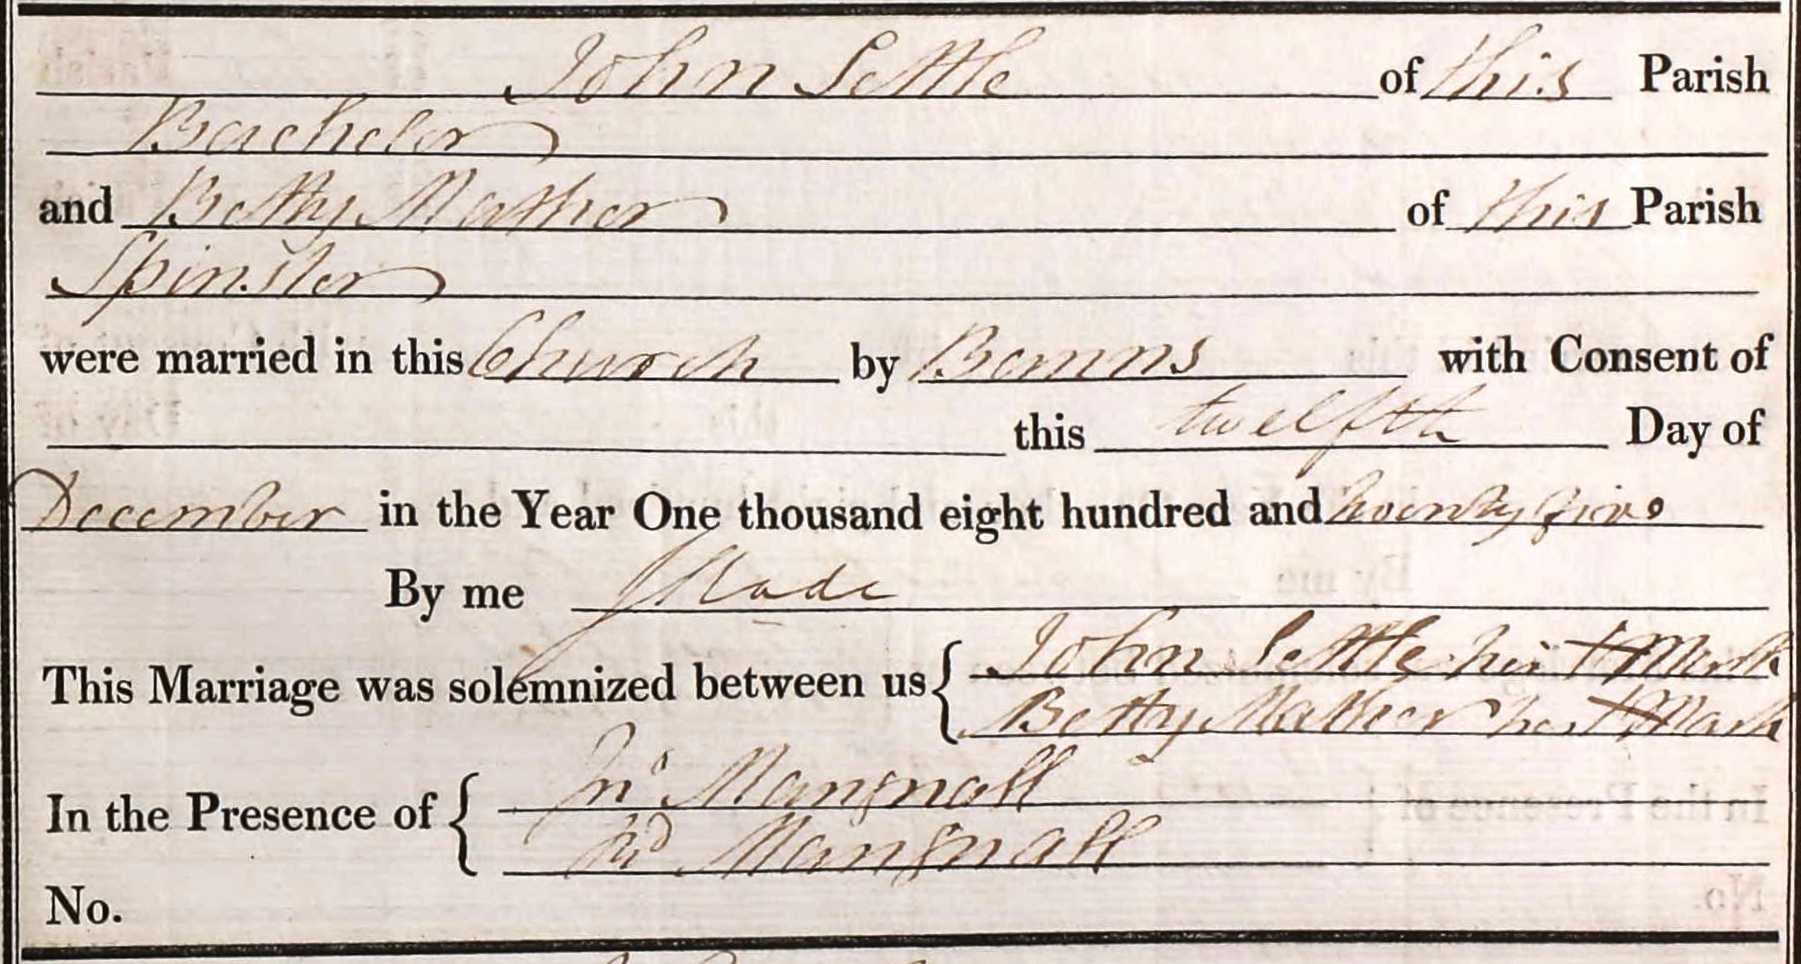 John Settle of this Parish
Bachelor
and Betty Mather of this Parish
Spinster
were married in this Church by Banns with Consent of
this twelfth Day of
December in the Year One thousand eight hundred and twenty five
By me Slade
This Marriage was solemnized between us { John Settle his + Mark
Betty Mather her + Mark
In the Presence of { Jn° Mangnall
Mangnall
No.